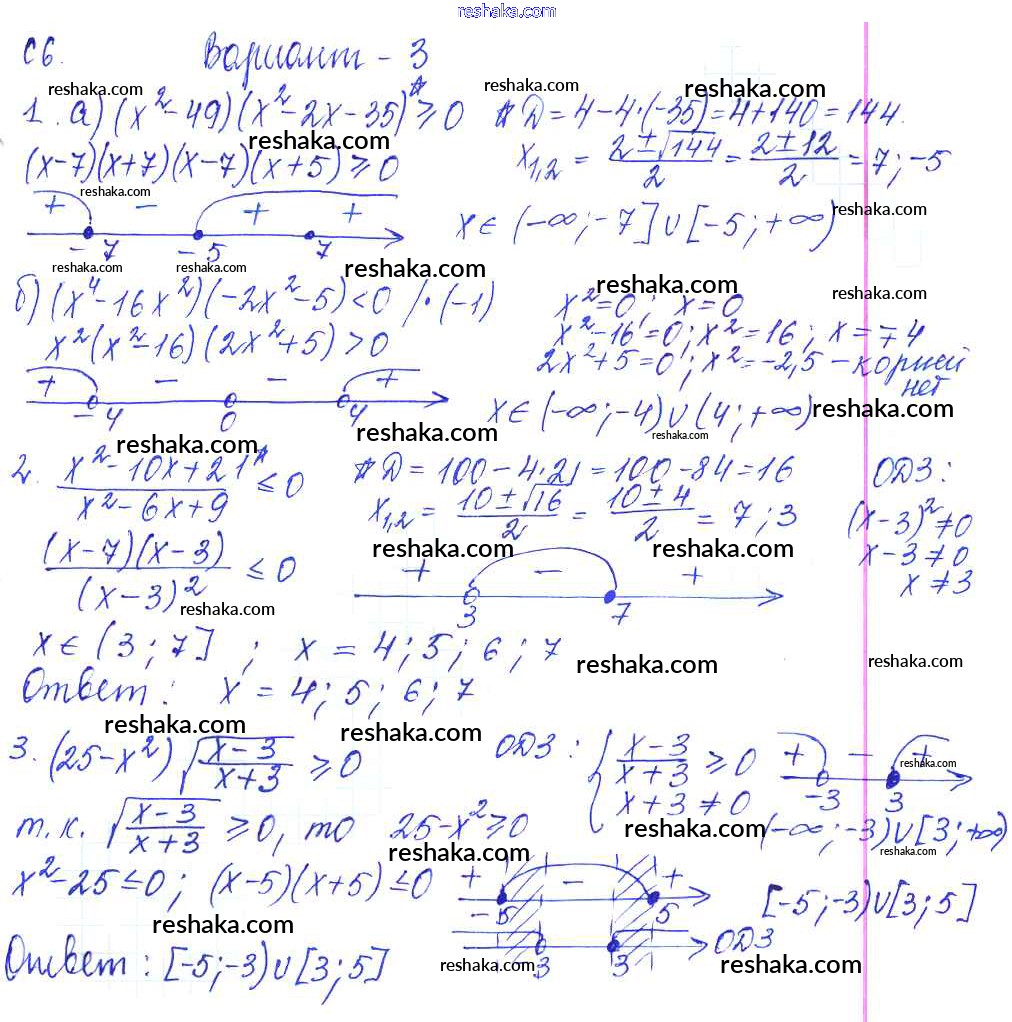 reshaka.com
С6. Вариант - 3
reshaka.com reshaka.com
1. а) (x² - 49)(x² - 2x - 35)* ≥ 0 * D = 4 - 4·(-35) = 4 + 140 = 144.
reshaka.com reshaka.com
(x-7)(x+7)(x-7)(x+5) ≥ 0 x₁,₂ = (2 ± √144)/2 = (2 ± 12)/2 = 7; -5
reshaka.com
+ - + + x ∈ (-∞; -7] ∪ [-5; +∞)
reshaka.com
-7 -5 7
reshaka.com reshaka.com reshaka.com
б) (x⁴ - 16x²)(-2x² - 5) < 0 /·(-1) x² = 0; x = 0
reshaka.com
x²(x² - 16)(2x² + 5) > 0 x² - 16 = 0; x² = 16; x = ∓4
2x² + 5 = 0; x² = -2,5 - корней нет
+ - - +
-4 0 4 x ∈ (-∞; -4) ∪ (4; +∞)
reshaka.com
reshaka.com reshaka.com reshaka.com
2. (x² - 10x + 21*)/(x² - 6x + 9) ≤ 0 * D = 100 - 4·21 = 100 - 84 = 16 ОДЗ:
x₁,₂ = (10 ± √16)/2 = (10 ± 4)/2 = 7; 3 (x-3)² ≠ 0
reshaka.com reshaka.com
(x-7)(x-3)/(x-3)² ≤ 0 + - + x - 3 ≠ 0
x ≠ 3
reshaka.com
3 7
x ∈ (3; 7] ; x = 4; 5; 6; 7
reshaka.com reshaka.com
Ответ: x = 4; 5; 6; 7
reshaka.com reshaka.com
3. (25 - x²) √((x-3)/(x+3)) ≥ 0 ОДЗ: { (x-3)/(x+3) ≥ 0 + - +
reshaka.com
x + 3 ≠ 0 -3 3
reshaka.com
т.к. √((x-3)/(x+3)) ≥ 0, то 25 - x² ≥ 0 (-∞; -3) ∪ [3; +∞)
reshaka.com reshaka.com
x² - 25 ≤ 0; (x-5)(x+5) ≤ 0 + - + [-5; -3) ∪ [3; 5]
-5 5
reshaka.com reshaka.com
-3 3 ОДЗ
Ответ: [-5; -3) ∪ [3; 5]
reshaka.com reshaka.com